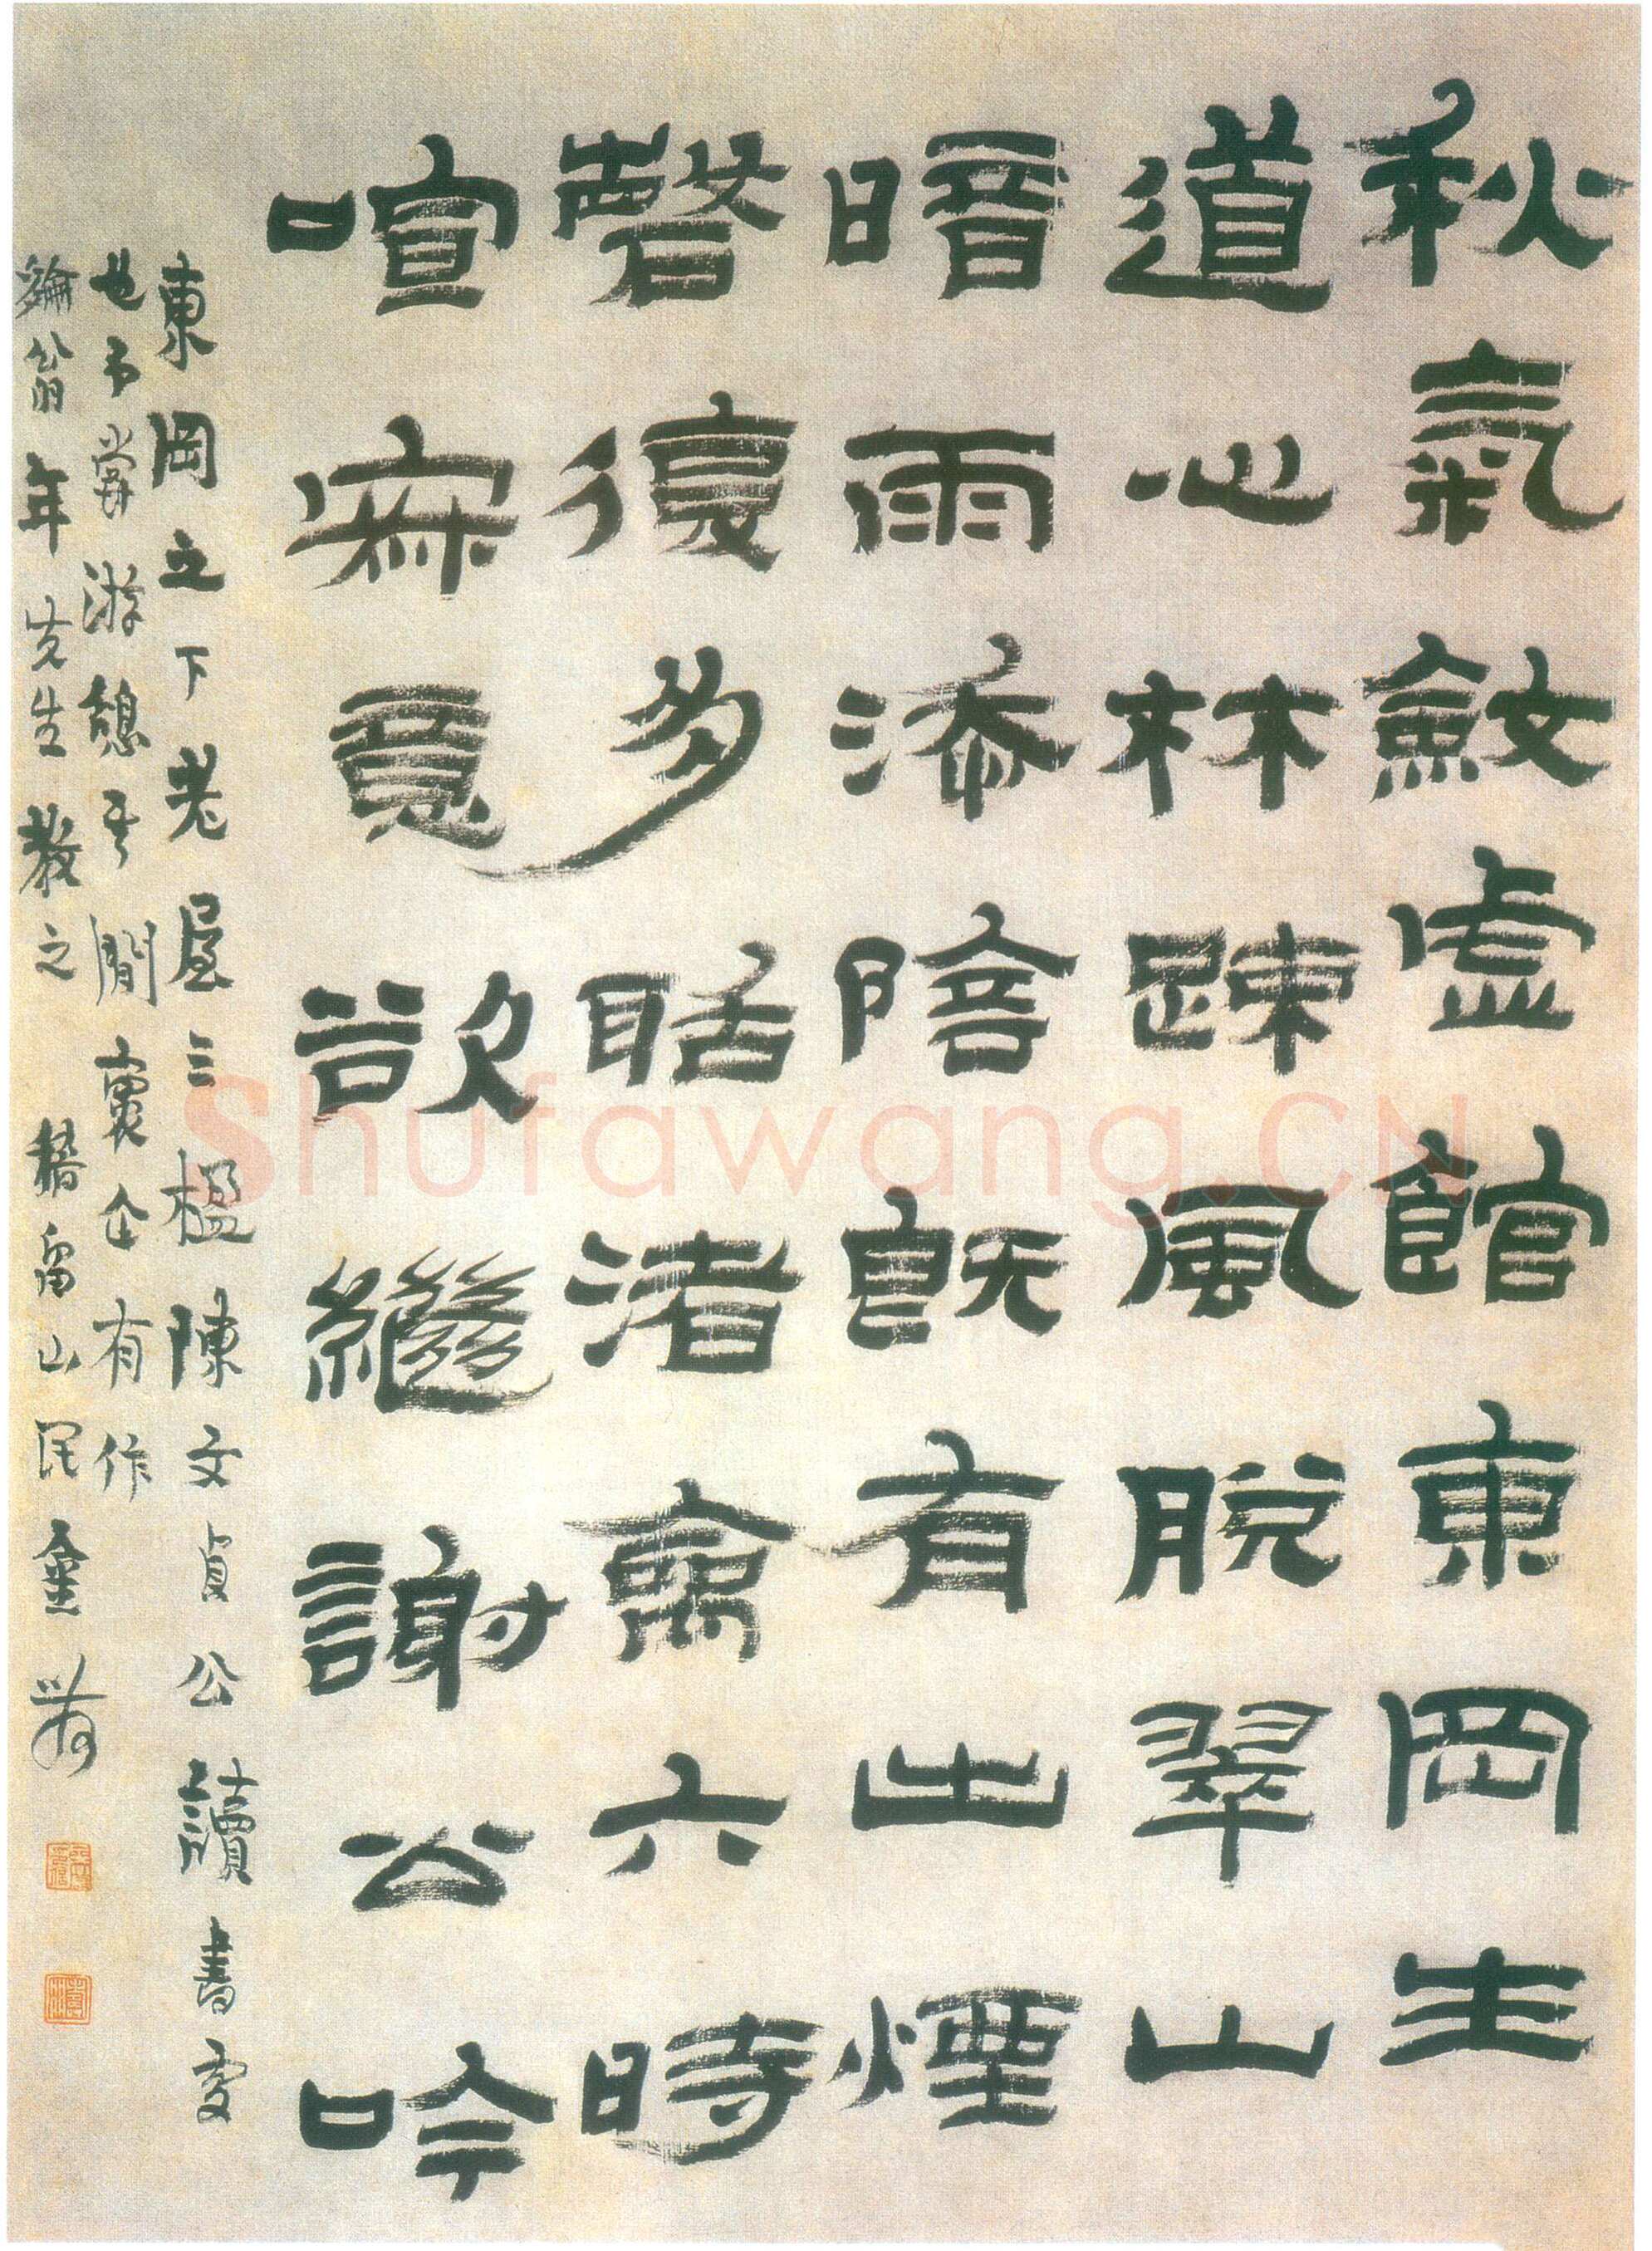 秋氣斂虛館東岡生
道心林疎風脫翠山
暗雨添陰旣有出煙
磬復多聒渚禽六時
喧寐意欲繼謝公吟
東岡之下老屋三楹陳文貞公讀書處
也予嘗游憩其間褱企有作
綸翁年先生教之 稽留山民金農
Shufawang.CN